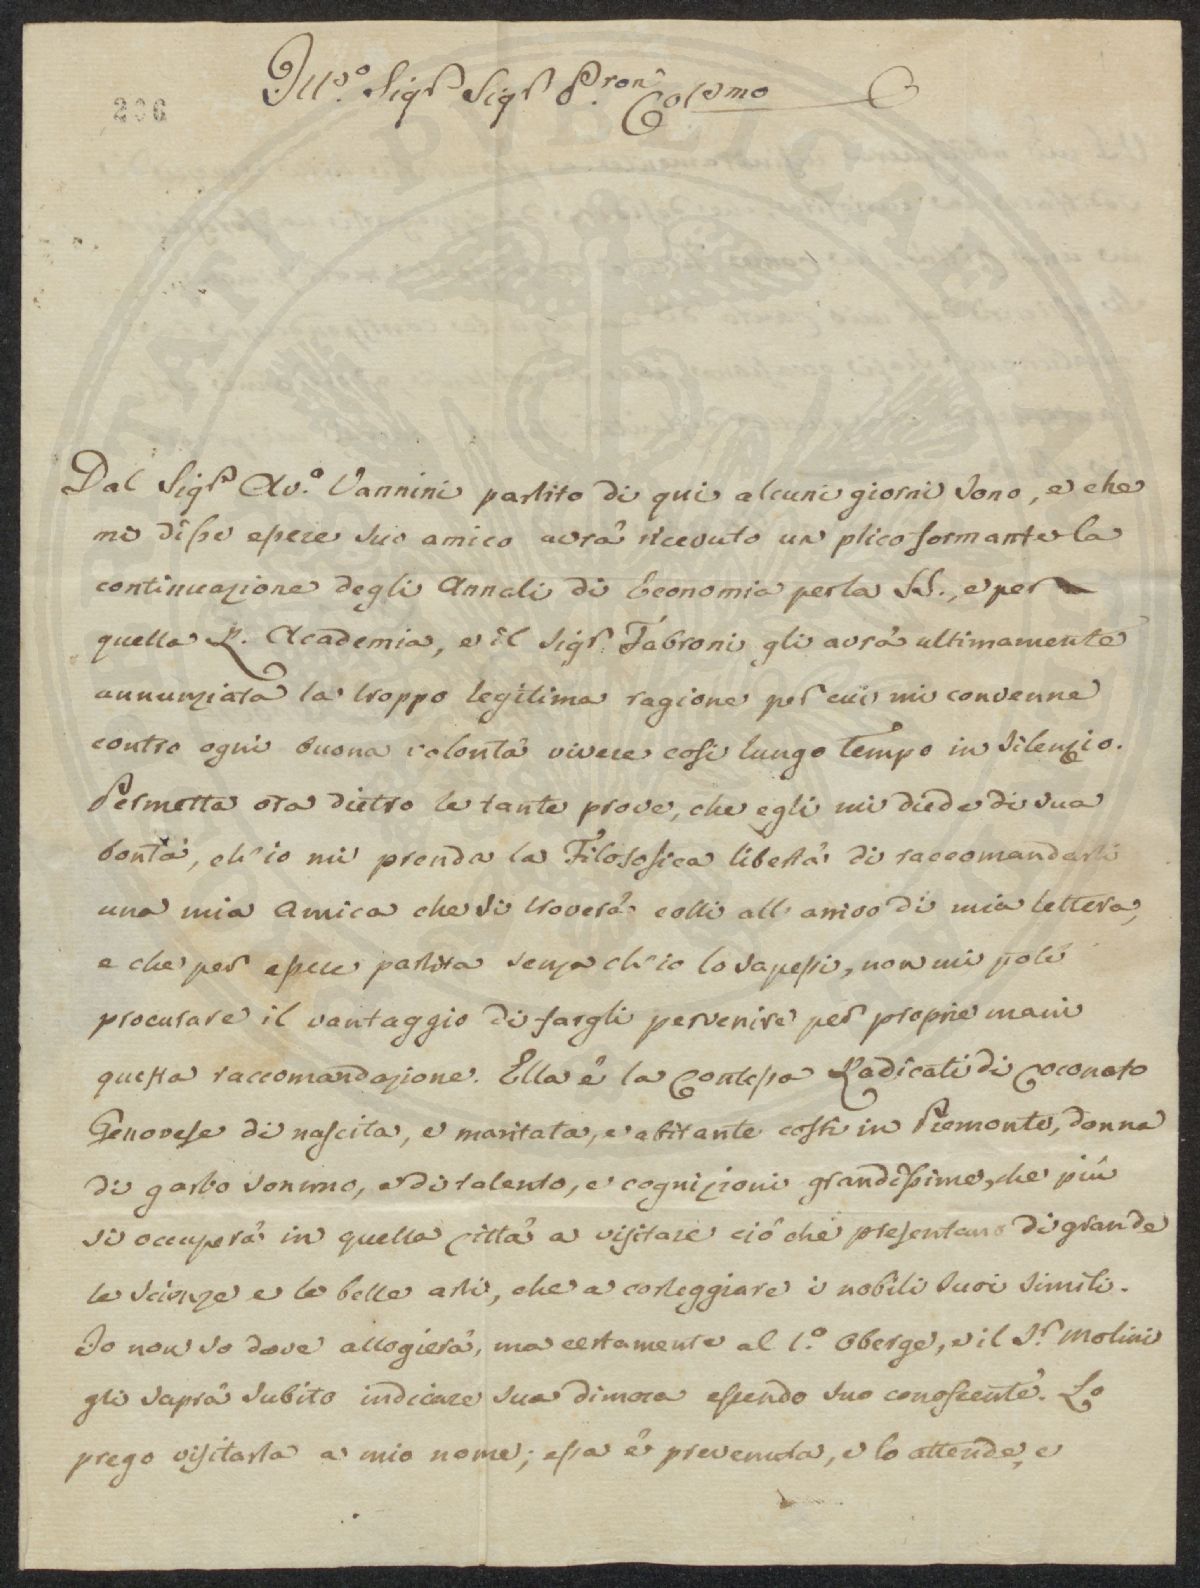 206
Ill.º Sigr Sigr Pron Colmo
Dal Sigr Av.º Vannini partito di qui alcuni giorni sono, e che
mi disse essere suo amico avrà ricevuto un plico formante la
continuazione degli Annali di Economia per la SS., e per
quella R. Academia, e il Sigr. Fabroni gli avrà ultimamente
annunziata la troppo legitima ragione per cui mi convenne
contro ogni buona volontà vivere così lungo tempo in silenzio.
Permetta ora dietro le tante prove, che egli mi diede di sua
bontà, ch'io mi prenda la Filosofica libertà di raccomandarli
una mia Amica che si troverà costì all'arrivo di mia lettera,
e che per essere partita senza ch'io lo sapessi, non mi potè
procurare il vantaggio di fargli pervenire per proprie mani
questa raccomandazione. Ella è la Contessa Radicati di Coconato
Genovese di nascita, e maritata, e abitante costì in Piemonte, donna
di garbo sommo, e di talento, e cognizioni grandissime, che più
si occuperà in quella città a visitare ciò che presentano di grande
le scienze e le belle arti, che a corteggiare i nobili suoi simili.
Io non so dove allogierà, ma certamente al 1.º Oberge, e il Sr. Molini
gli saprà subito indicare sua dimora essendo suo conoscente. Lo
prego visitarla a mio nome; essa è prevenuta, e lo attende, e